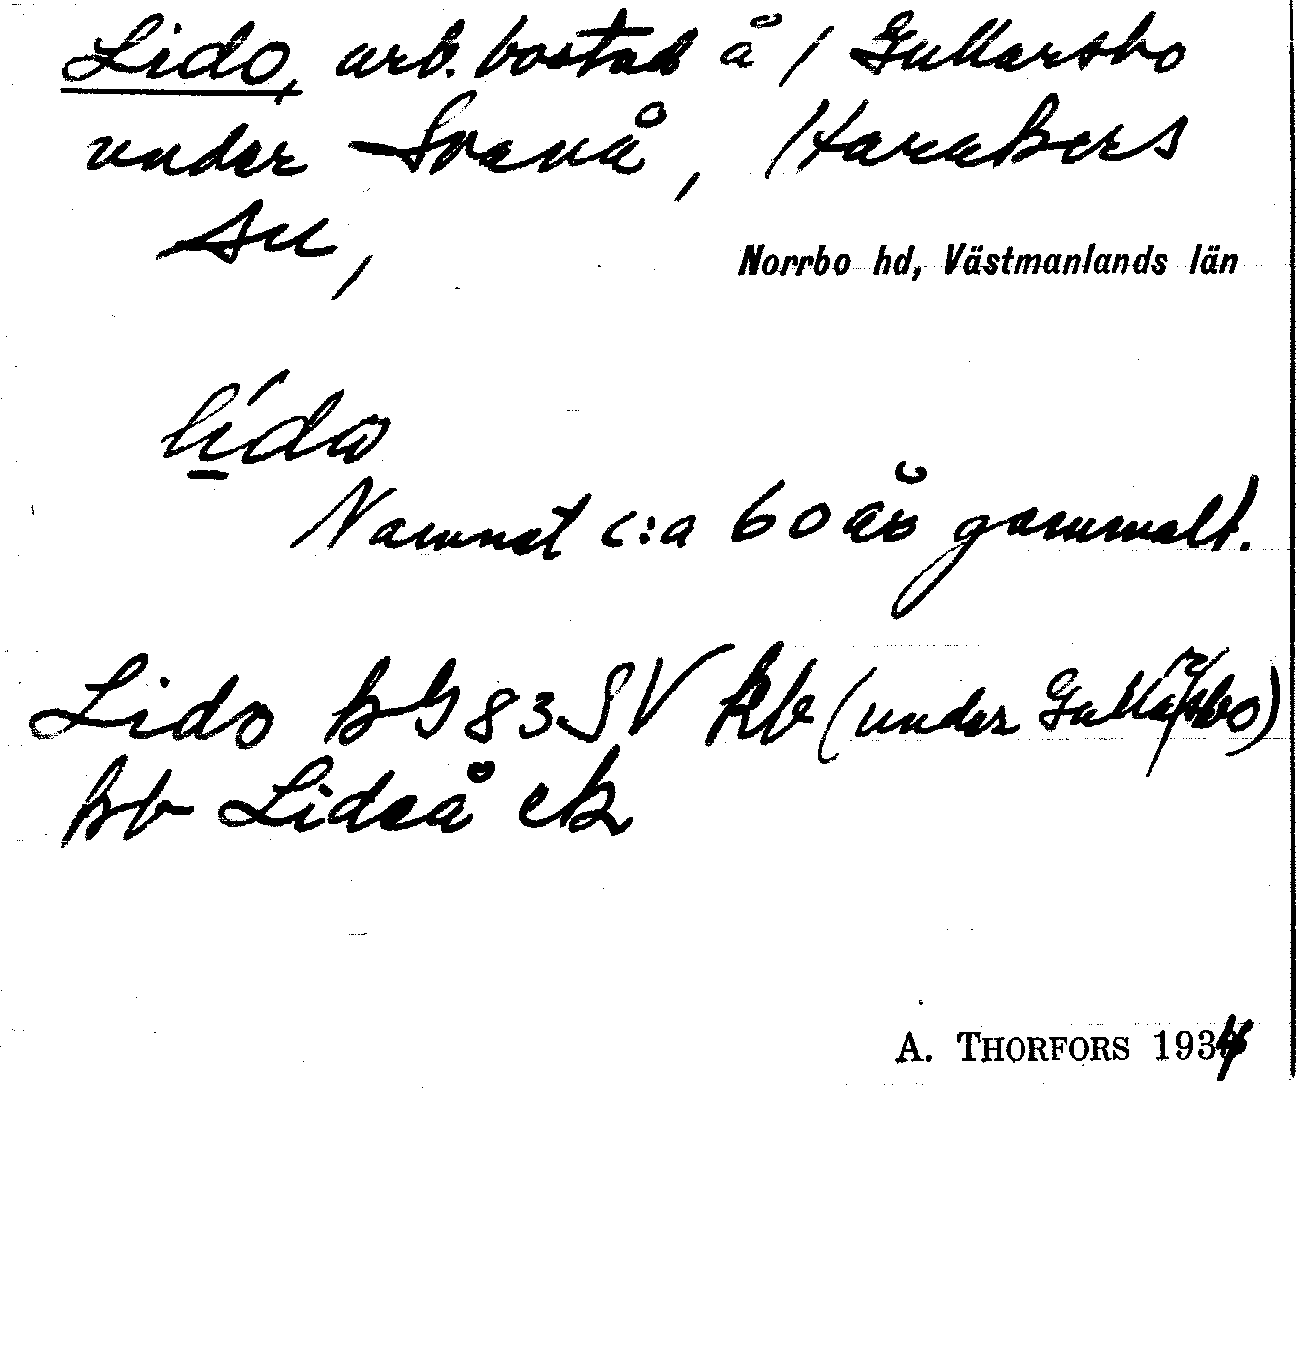 Lido, arb. bostad å / Gullarsbo
under Svanå, Harakers
sn,
Norrbo hd, Västmanlands län
lido
Namnet c:a 60 år gammalt.
Lido BG 83 SV kb (under Gullarsbo)
bb Lidså ek
A. THORFORS 1934